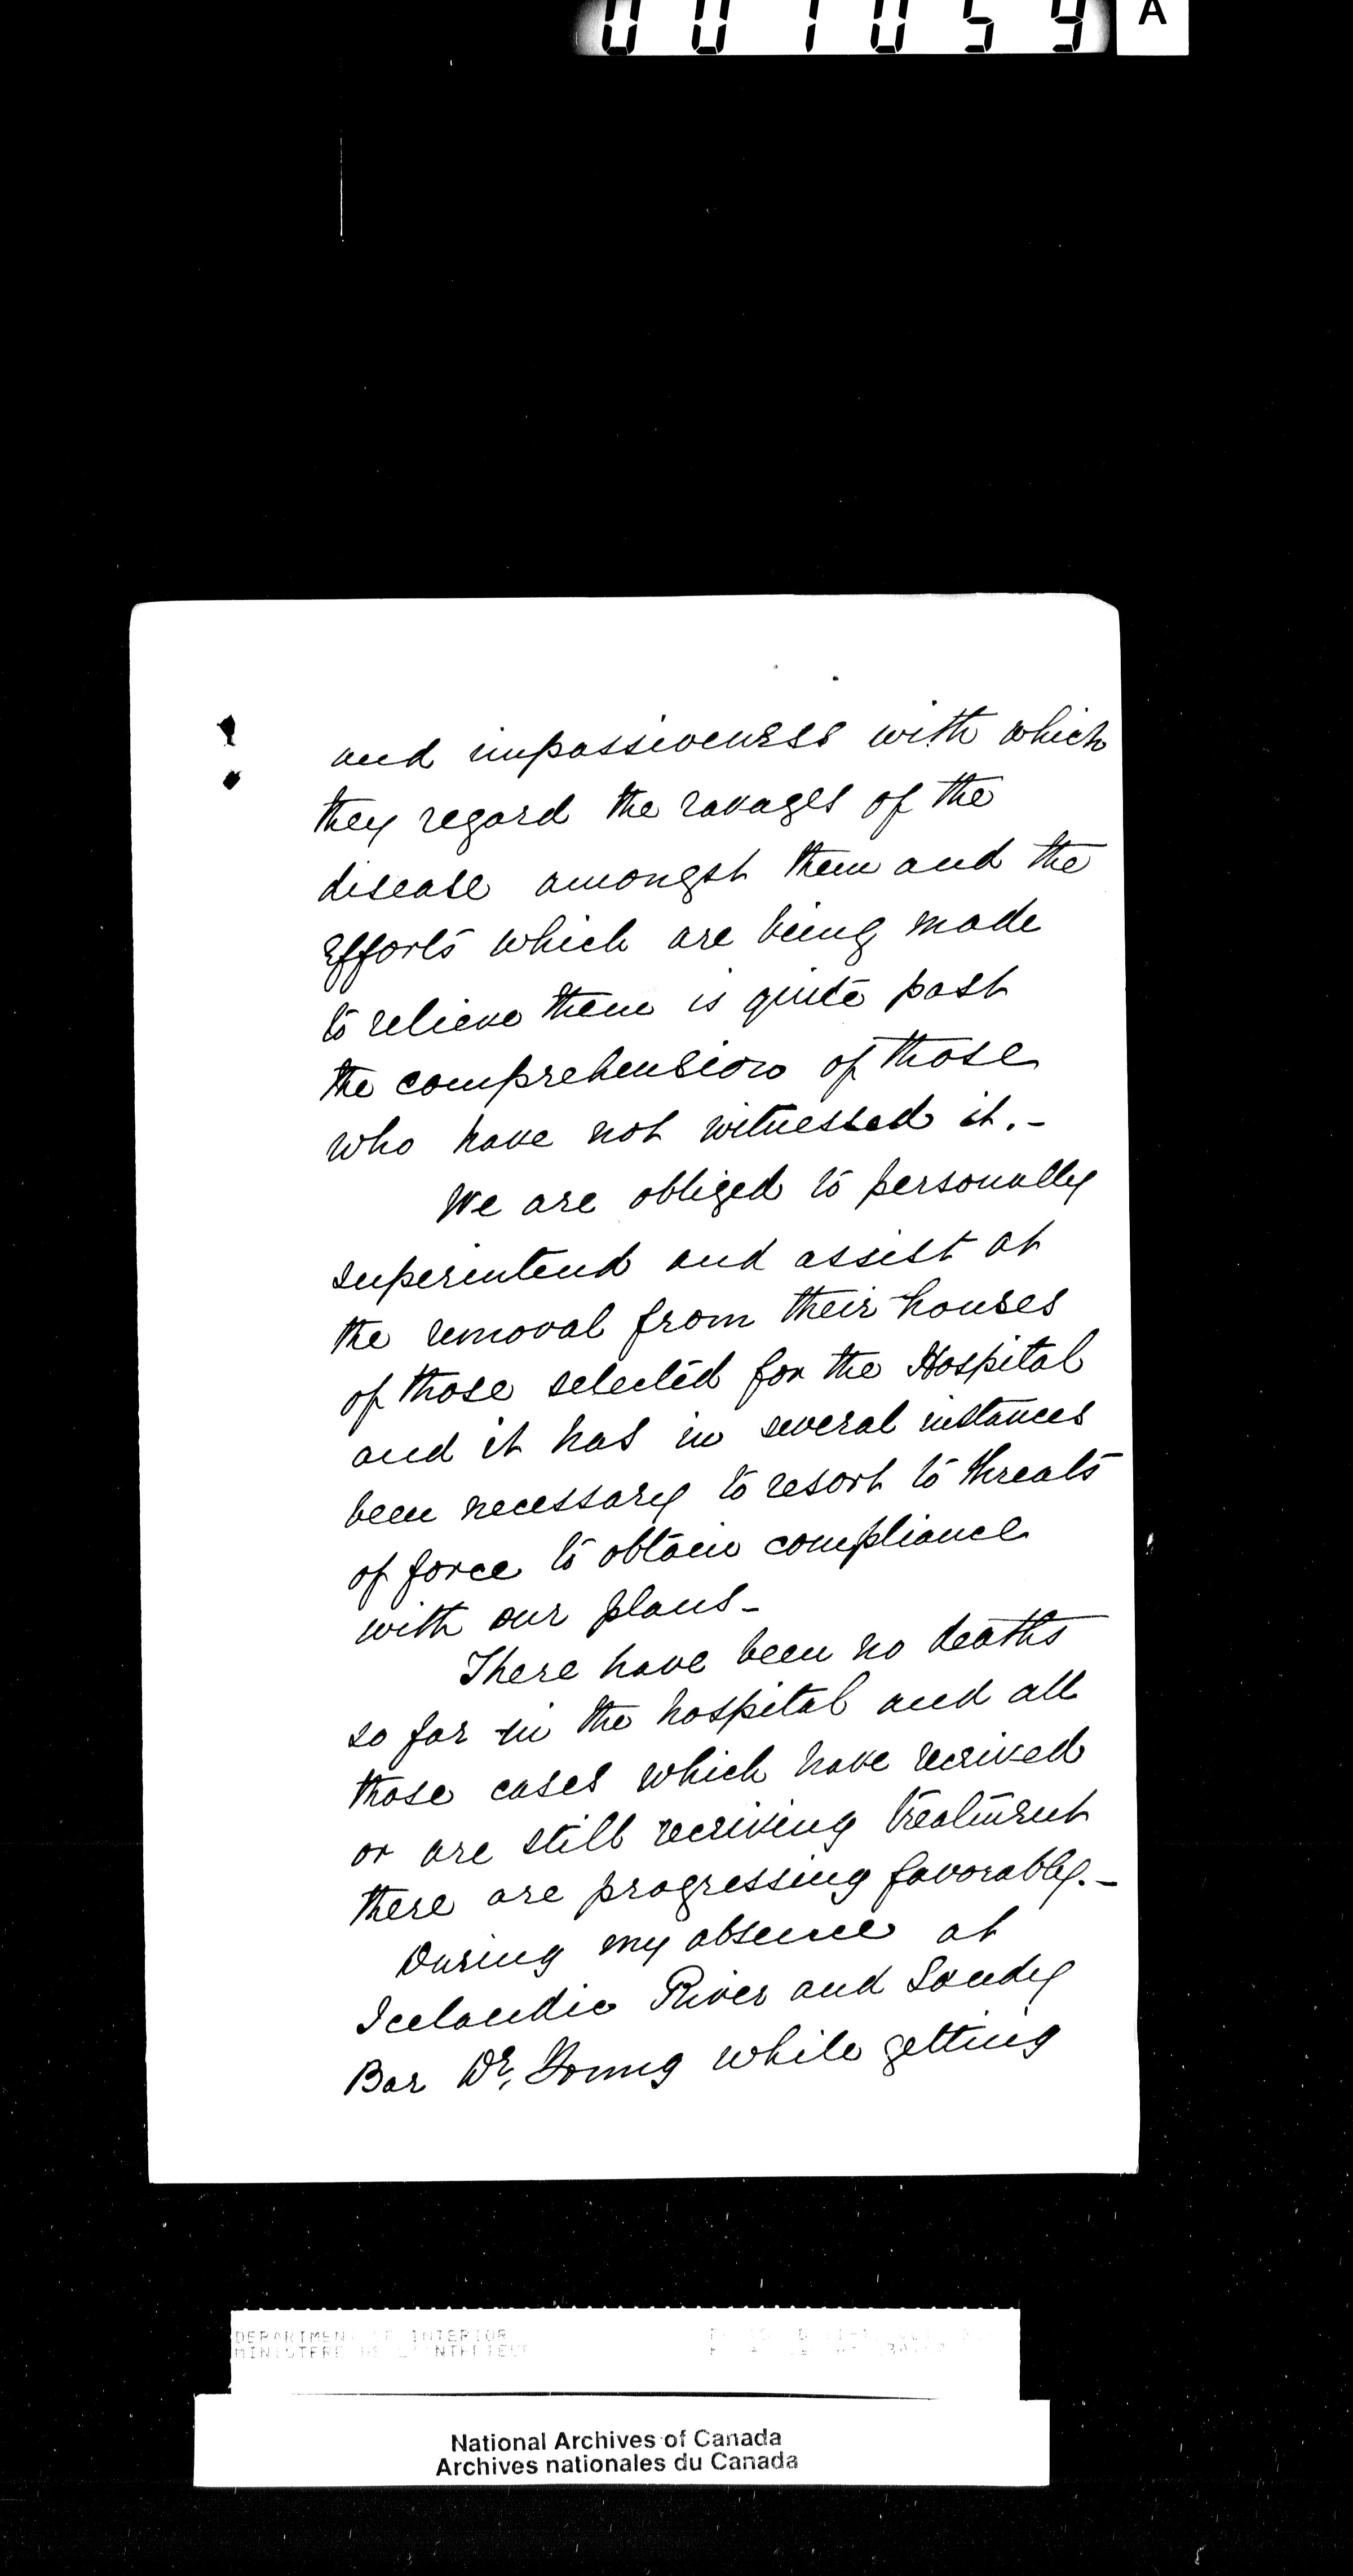 001059 A
and impassiveness with which
they regard the ravages of the
disease amongst them and the
efforts which are being made
to relieve them is quite past
the comprehension of those
who have not witnessed it. -
We are obliged to personally
superintend and assist at
the removal from their houses
of those selected for the Hospital
and it has in several instances
been necessary to resort to threats
of force to obtain compliance
with our plans -
There have been no deaths
so far in the hospital and all
those cases which have received
or are still receiving treatment
there are progressing favorably. -
During my absence at
Icelandic River and Sandy
Bar Dr, Young while getting
DEPARTMENT OF INTERIOR
MINISTERE DE L'INTERIEUR
National Archives of Canada
Archives nationales du Canada